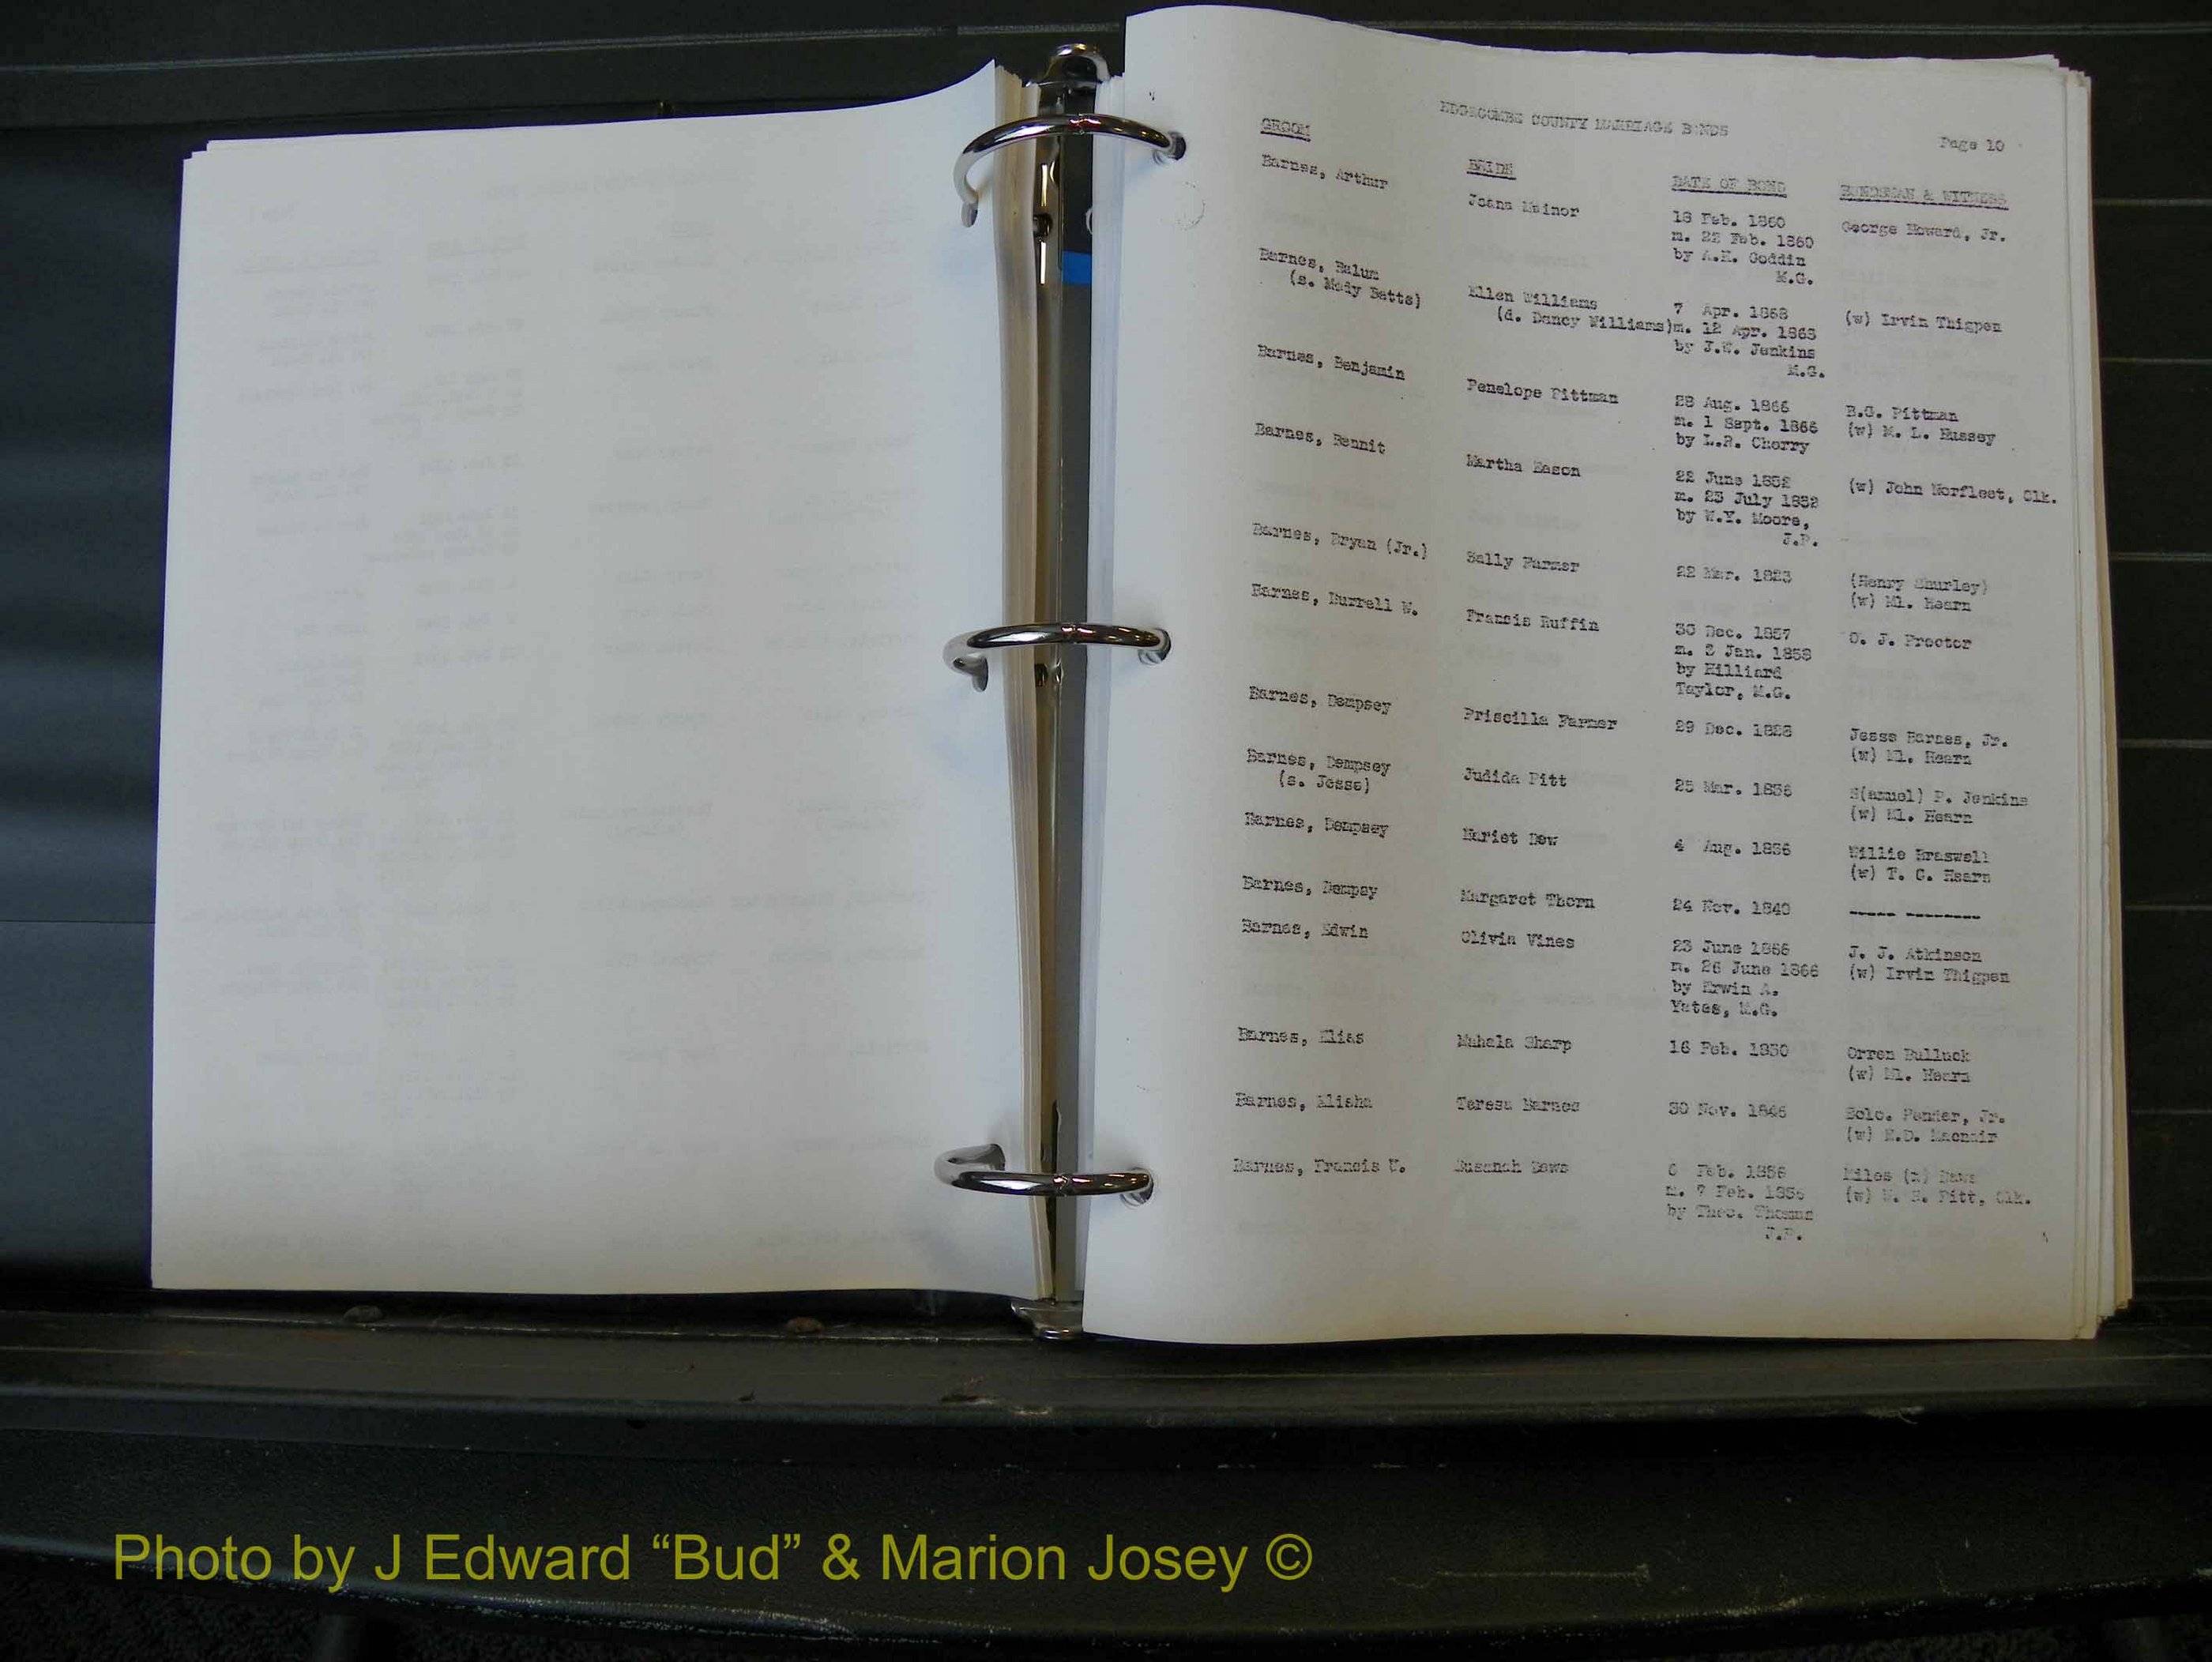 EDGECOMBE COUNTY MARRIAGE BONDS
Page 10
GROOM BRIDE DATE OF BOND BONDSMAN & WITNESS
Barnes, Arthur Joana Mainor 18 Feb. 1860 George Howard, Jr.
m. 22 Feb. 1860
by A.H. Goddin
M.G.
Barnes, Balum Ellen Williams 7 Apr. 1868 (w) Irvin Thigpen
(s. Mody Batts) (d. Dancy Williams) m. 12 Apr. 1868
by J.W. Jenkins
M.G.
Barnes, Benjamin Penelope Pittman 28 Aug. 1866 B.G. Pittman
m. 1 Sept. 1866 (w) M. L. Hussey
by L.R. Cherry
Barnes, Bennit Martha Eason 22 June 1852 (w) John Norfleet, Clk.
m. 23 July 1852
by W.Y. Moore,
J.P.
Barnes, Bryan (Jr.) Sally Farmer 22 Mar. 1823 (Henry Shurley)
(w) Ml. Hearn
Barnes, Burrell W. Francis Ruffin 30 Dec. 1857 O. J. Proctor
m. Jan. 1858
by Hilliard
Taylor, M.G.
Barnes, Dempsey Priscilla Farmer 29 Dec. 1828 Jesse Barnes, Jr.
(w) Ml. Hearn
Barnes, Dempsey Judida Pitt 25 Mar. 1836 S(amuel) P. Jenkins
(s. Jesse) (w) Ml. Hearn
Barnes, Dempsey Hariet Dew 4 Aug. 1836 Willie Braswell
(w) T. C. Hearn
Barnes, Dempsy Margaret Thorn 24 Nov. 1840 ----- --------
Barnes, Edwin Olivia Vines 23 June 1866 J. J. Atkinson
m. 26 June 1866 (w) Irvin Thigpen
by Erwin A.
Yates, M.G.
Barnes, Elias Mahala Sharp 16 Feb. 1830 Orren Bulluck
(w) Ml. Hearn
Barnes, Elisha Teresa Barnes 30 Nov. 1846 Solo. Pender, Jr.
(w) N.D. Macnair
Barnes, Francis U. Susanah Dews Feb. 1856 Miles (x) Daws
m. 7 Feb. (w) W. S. Pitt, Clk.
by Theo. Thomas
J.P.
Photo by J Edward “Bud” & Marion Josey ©